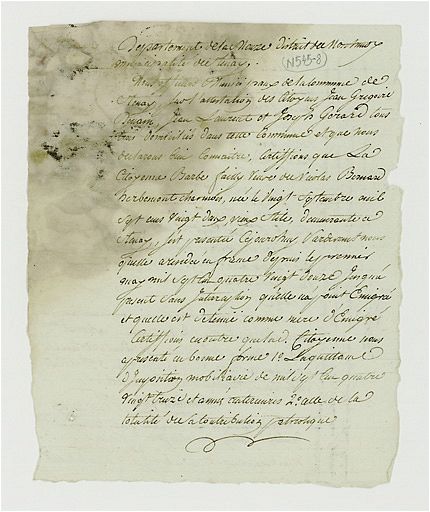 Departement de la Meuze District de Montmedy
municipalité de Stenay.
(N545-8)
Nous officiers municipaux de la Commune de
Stenay, sur l'attestation des Citoyens Jean Gregoire
Jean Laurent et Joseph Gerard tous
trois domiciliés dans cette Commune et que nous
declarons bien connaitre, Certiffions que La
Citoyenne Barbe Veuve de Nicolas Bernard
née le vingt Septembre mil
Sept cens vingt deux vieux Stile, demeurante a
Stenay, s'est presentée cejourd'hui pardevant nous
quelle a residé en france depuis le premier
may mil sept cen quatre vingt douze jusqu'a
present sans interruption quelle na point Emigré
et quelle est detenüe comme mere d'Emigré
Certiffions en outre que lad. Citoyenne nous
a presenté en bonne forme 1° la quittance
d'imposition mobiliaire de mil sept cen quatre
vingt treize et années anterieures 2° celle de la
totalité de la Contribution patriotique